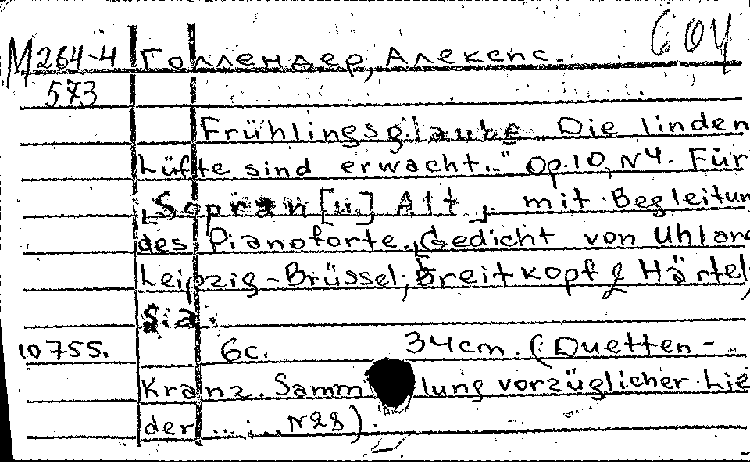 M 264-4 Голлендер, Алекснс. СОЧ
573
Frühlingsglaube „Die linden
Lüfte sind erwacht." Op.10, N4. Für
Sopran [u.] Alt, mit Begleitun
des Pianoforte. Gedicht von Uhland
Leipzig-Brüssel, Breitkopf & Härtel,
s.a.
10755. 6c. 34cm. (Duetten-
Kranz. Sammlung vorzüglicher Lie
der ... N28).